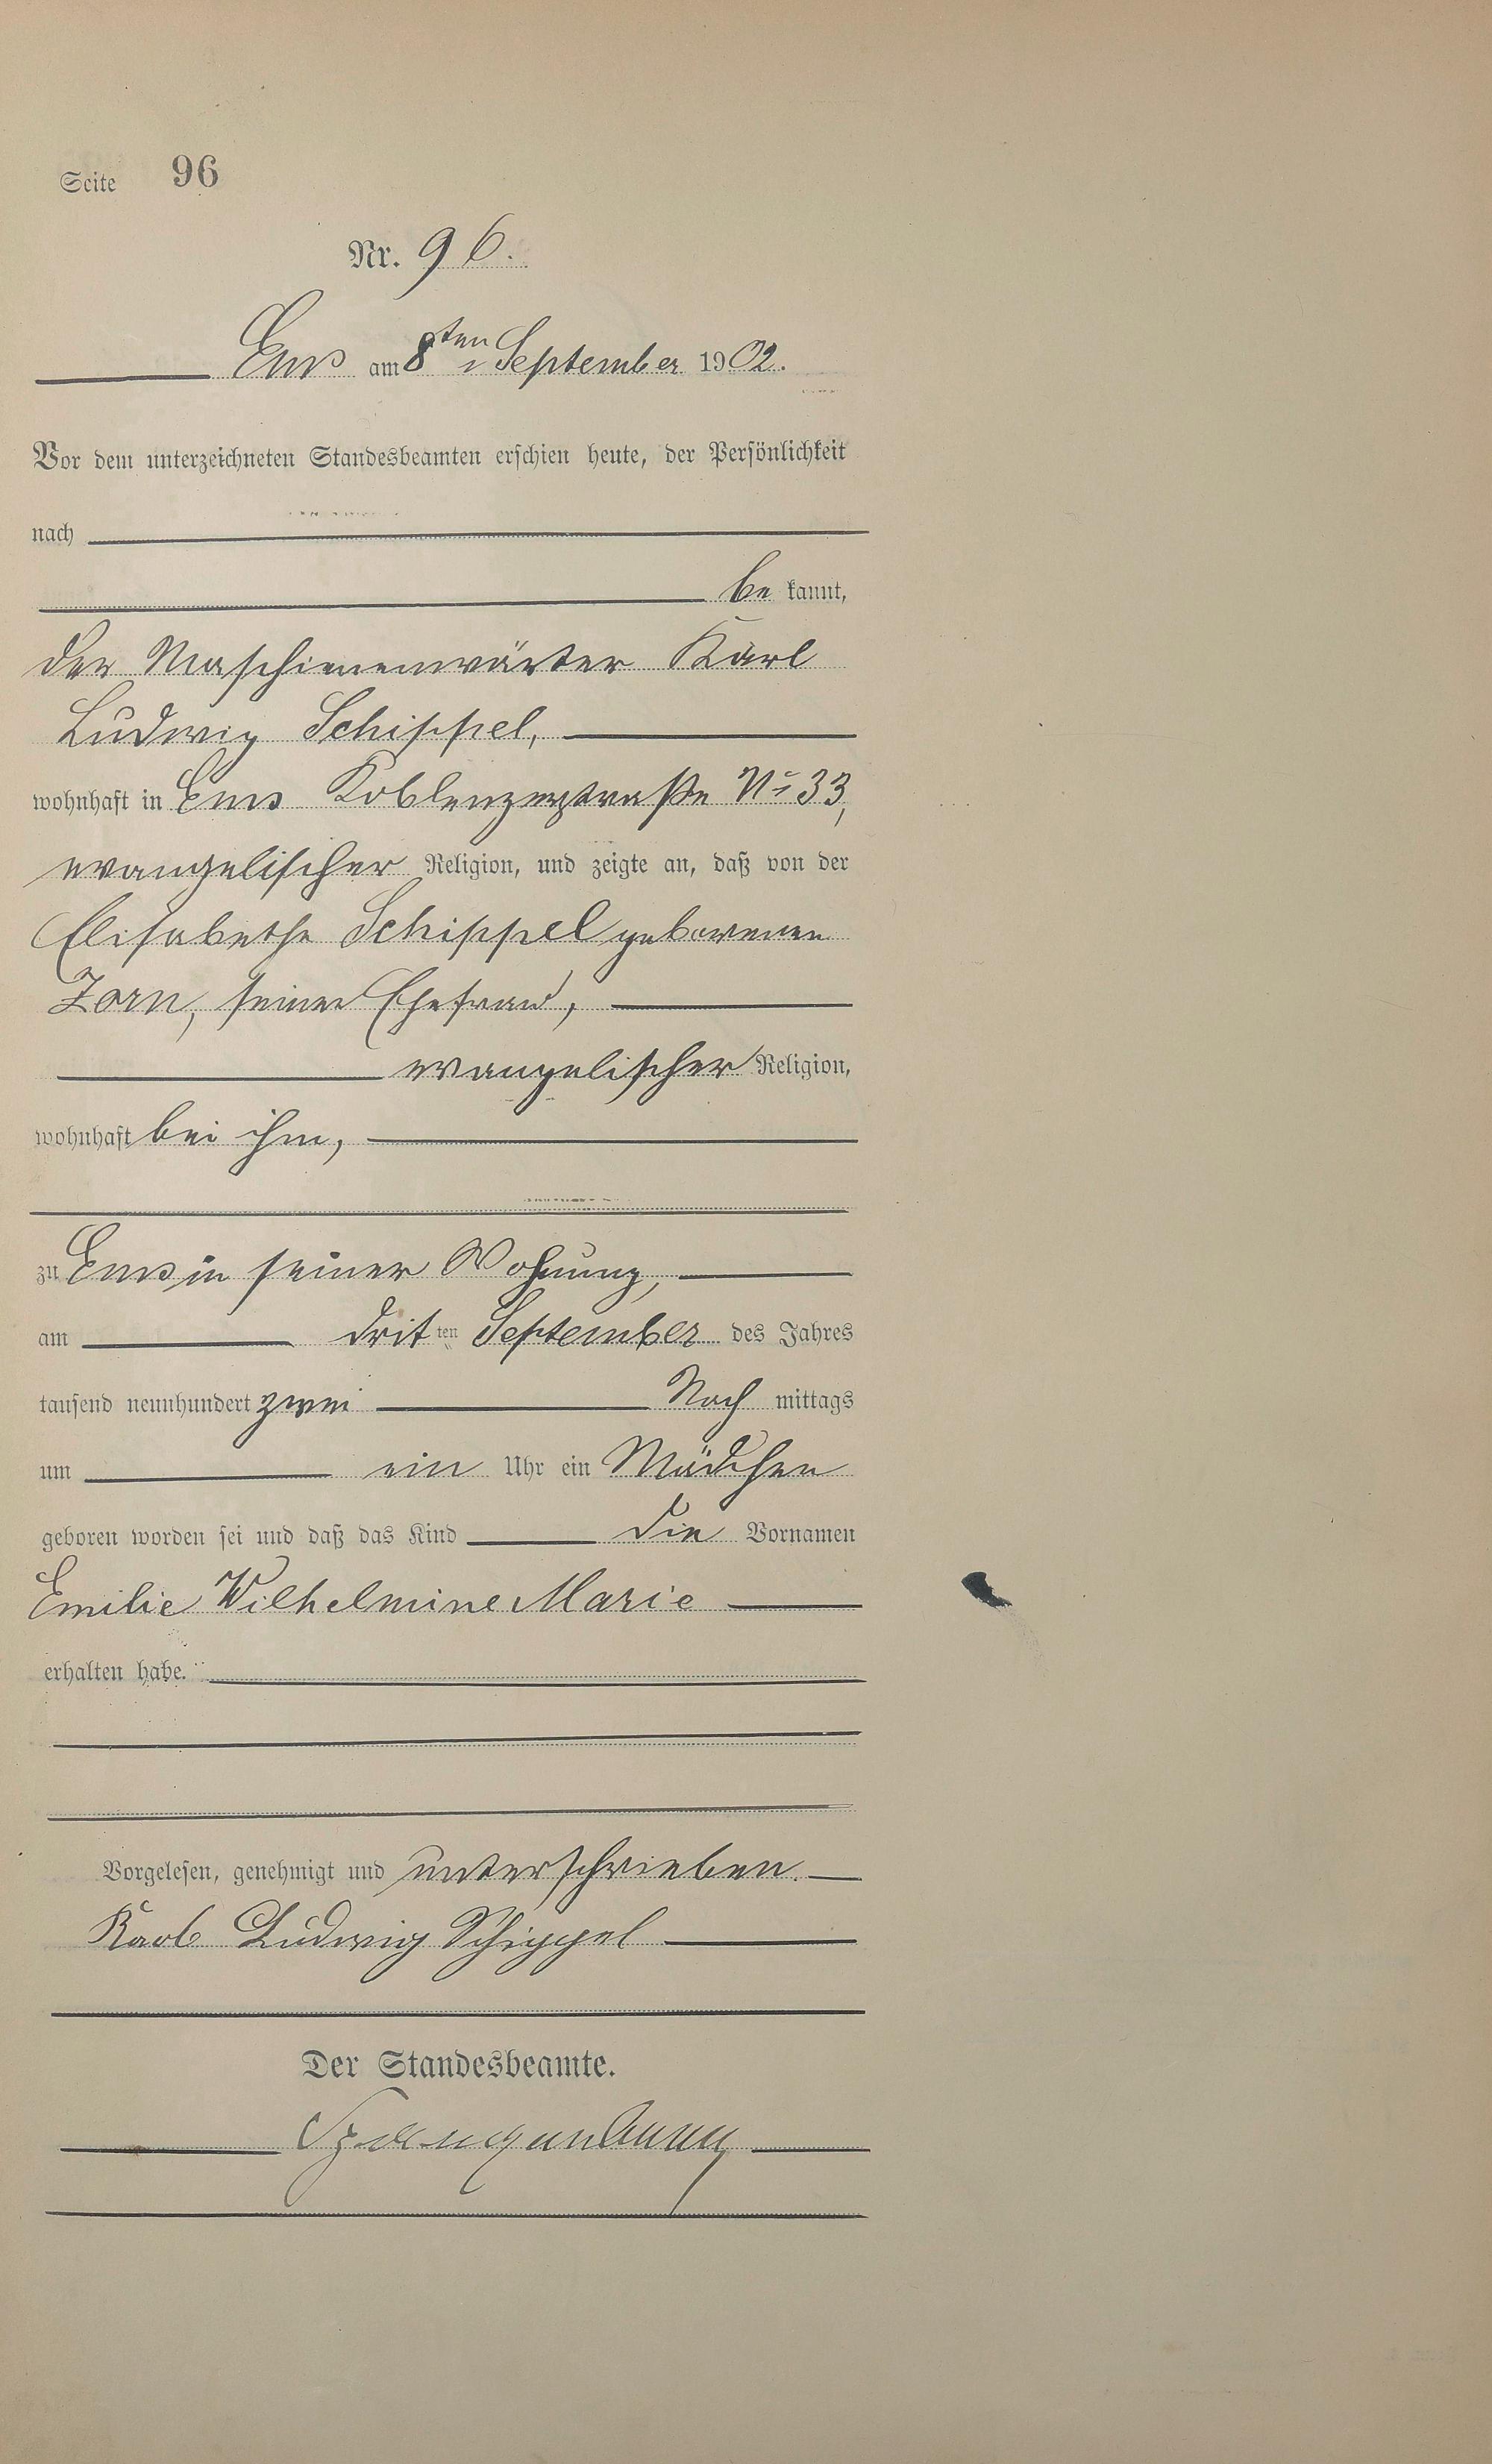 Seite 96
Nr. 96.
Ems am 8ten September 1902.
Vor dem unterzeichneten Standesbeamten erschien heute, der Persönlichkeit
nach
be kannt,
der Maschinenwärter Karl
Ludwig Schippel,
wohnhaft in Ems Koblenzerstraße No 33,
evangelischer Religion, und zeigte an, daß von der
Elisabethe Schippel geborenen
Zorn, seiner Ehefrau,
evangelischer Religion,
wohnhaft bei ihm,
zu Ems in seiner Wohnung,
am dritten September des Jahres
tausend neunhundert zwei Nach mittags
um ein Uhr ein Mädchen
geboren worden sei und daß das Kind die Vornamen
Emilie Wilhelmine Marie
erhalten habe.
Vorgelesen, genehmigt und unterschrieben.
Karl Ludwig Schippel
Der Standesbeamte.